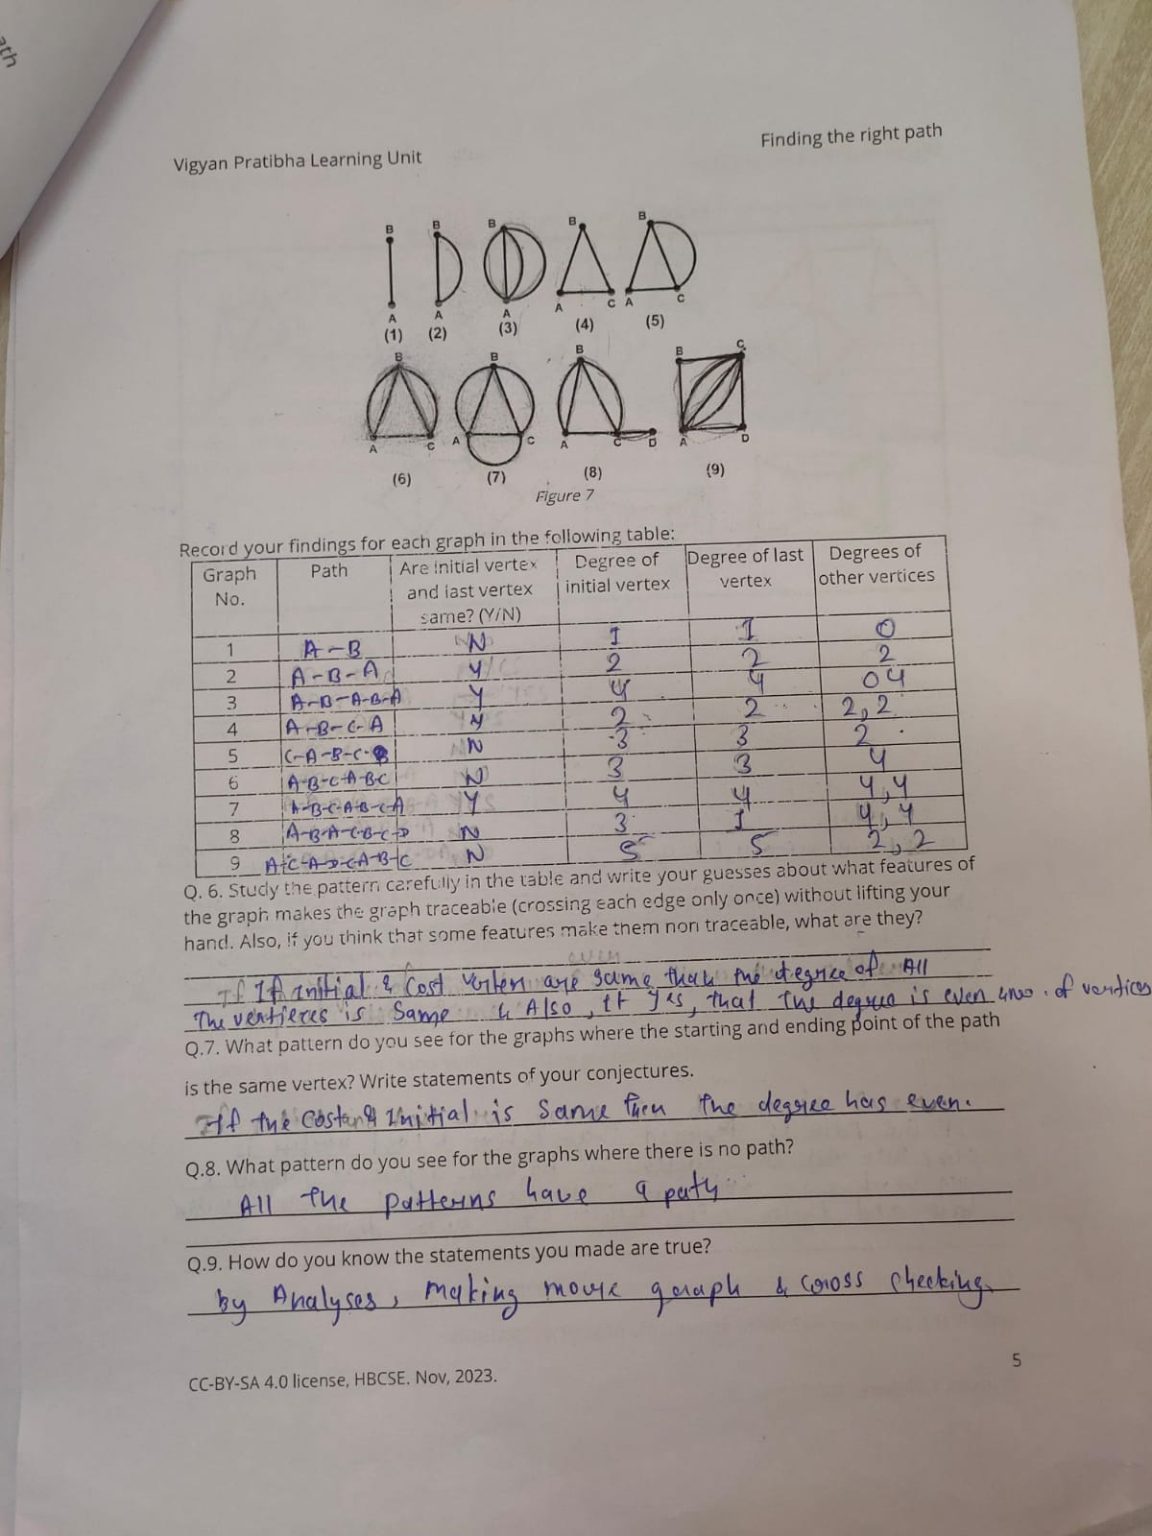 ath
Vigyan Pratibha Learning Unit
Finding the right path
B B B B B
A A A A C A C
(1) (2) (3) (4) (5)
B B B B C
A C A C A C D A D
(6) (7) (8) (9)
Figure 7
Record your findings for each graph in the following table:
Graph No. Path Are initial vertex and last vertex same? (Y/N) Degree of initial vertex Degree of last vertex Degrees of other vertices
1 A-B N 1 1 0
2 A-B-A Y 2 2 2
3 A-B-A-B-A Y 4 4 04
4 A-B-C-A Y 2 2 2,2
5 C-A-B-C-B N 3 3 2
6 A-B-C-A-BC N 3 3 4
7 A-B-C-A-B-CA Y 4 4 4,4
8 A-B-A-C-B-C-D N 3 1 4,4
9 A-C-A-D-CA-B-C N 5 5 2,2
Q. 6. Study the pattern carefully in the table and write your guesses about what features of
the graph makes the graph traceable (crossing each edge only once) without lifting your
hand. Also, if you think that some features make them non traceable, what are they?
If initial & Cost are same than the degree of All
The is Same & Also, If yes, that The degree is even of
Q.7. What pattern do you see for the graphs where the starting and ending point of the path
is the same vertex? Write statements of your conjectures.
If the Cost & Initial is Same then the degree has even.
Q.8. What pattern do you see for the graphs where there is no path?
All The patterns have a path
Q.9. How do you know the statements you made are true?
by Analyses, Making graph & cross checking.
CC-BY-SA 4.0 license, HBCSE. Nov, 2023.
5